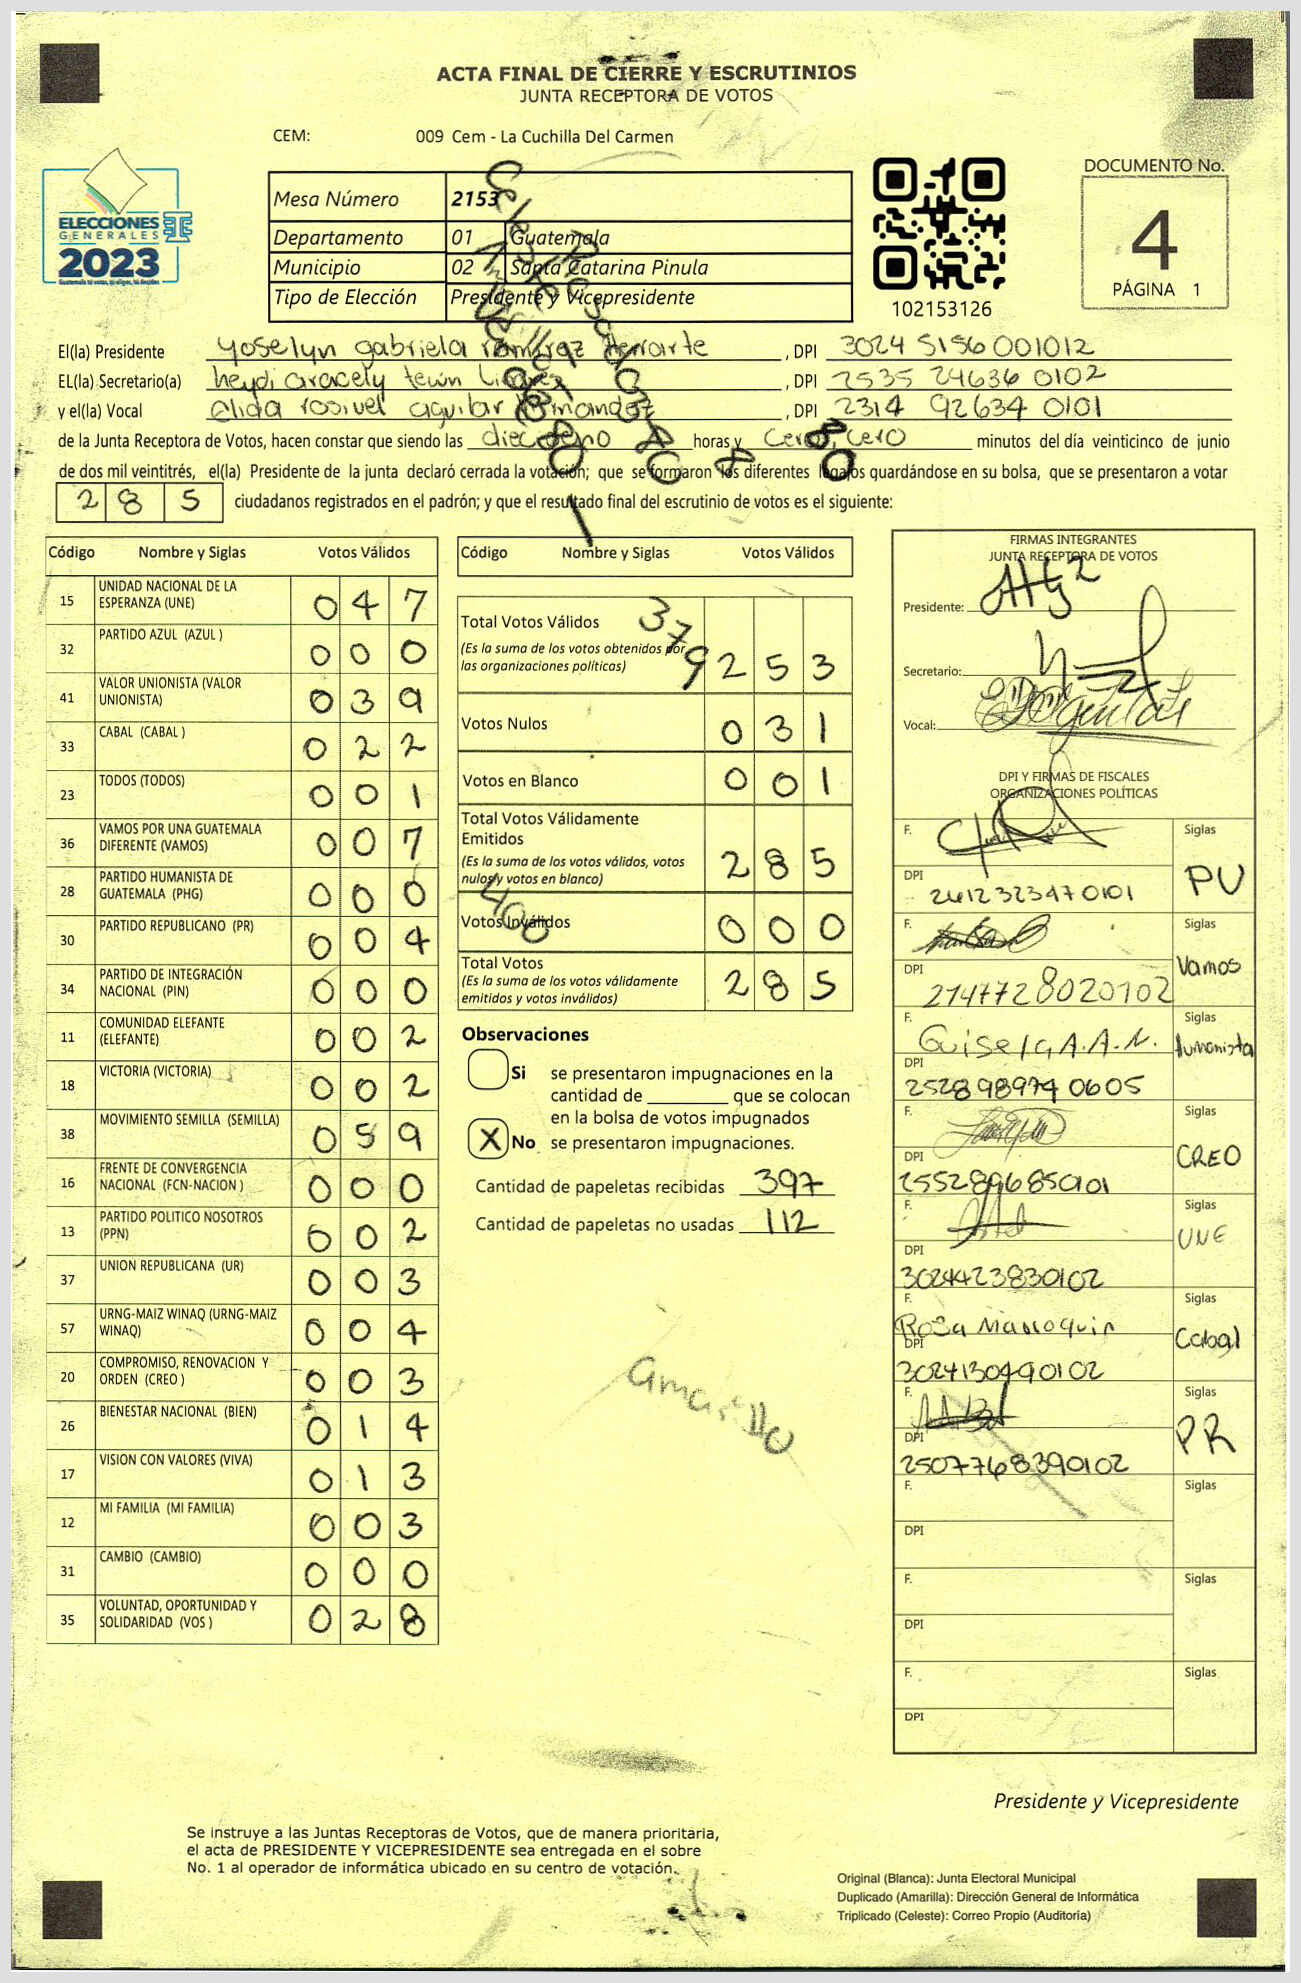 ACTA FINAL DE CIERRE Y ESCRUTINIOS
JUNTA RECEPTORA DE VOTOS
CEM: 009 Cem - La Cuchilla Del Carmen
ELECCIONES
GENERALES
2023
Mesa Número 2153
Departamento 01 Guatemala
Municipio 02 Santa Catarina Pinula
Tipo de Elección Presidente y Vicepresidente
102153126
DOCUMENTO No.
4
PÁGINA 1
El(la) Presidente Yoselyn gabriela ramirez, DPI 3024 5156 001012
EL(la) Secretario(a) heydi aracely, DPI 2535 24636 0102
y el(la) Vocal Elida rosivel aguilar hernandez, DPI 2314 92634 0101
de la Junta Receptora de Votos, hacen constar que siendo las dieciocho horas y Cero, Cero minutos del día veinticinco de junio
de dos mil veintitrés, el(la) Presidente de la junta declaró cerrada la votación; que se formaron los diferentes legajos guardándose en su bolsa, que se presentaron a votar
285 ciudadanos registrados en el padrón; y que el resultado final del escrutinio de votos es el siguiente:
Código Nombre y Siglas Votos Válidos
15 UNIDAD NACIONAL DE LA ESPERANZA (UNE) 047
32 PARTIDO AZUL (AZUL ) 000
41 VALOR UNIONISTA (VALOR UNIONISTA) 039
33 CABAL (CABAL ) 022
23 TODOS (TODOS) 001
36 VAMOS POR UNA GUATEMALA DIFERENTE (VAMOS) 007
28 PARTIDO HUMANISTA DE GUATEMALA (PHG) 000
30 PARTIDO REPUBLICANO (PR) 004
34 PARTIDO DE INTEGRACIÓN NACIONAL (PIN) 000
11 COMUNIDAD ELEFANTE (ELEFANTE) 002
18 VICTORIA (VICTORIA) 002
38 MOVIMIENTO SEMILLA (SEMILLA) 059
16 FRENTE DE CONVERGENCIA NACIONAL (FCN-NACION ) 000
13 PARTIDO POLITICO NOSOTROS (PPN) 002
37 UNION REPUBLICANA (UR) 003
57 URNG-MAIZ WINAQ (URNG-MAIZ WINAQ) 004
20 COMPROMISO, RENOVACION Y ORDEN (CREO ) 003
26 BIENESTAR NACIONAL (BIEN) 014
17 VISION CON VALORES (VIVA) 013
12 MI FAMILIA (MI FAMILIA) 003
31 CAMBIO (CAMBIO) 000
35 VOLUNTAD, OPORTUNIDAD Y SOLIDARIDAD (VOS ) 028
Código Nombre y Siglas Votos Válidos
Total Votos Válidos 253
(Es la suma de los votos obtenidos por
las organizaciones políticas)
379
Votos Nulos 031
Votos en Blanco 001
Total Votos Válidamente
Emitidos
(Es la suma de los votos válidos, votos
nulos y votos en blanco) 285
400
Votos Inválidos 000
Total Votos
(Es la suma de los votos válidamente
emitidos y votos inválidos) 285
Observaciones
Si se presentaron impugnaciones en la
cantidad de ________ que se colocan
en la bolsa de votos impugnados
X No se presentaron impugnaciones.
Cantidad de papeletas recibidas 397
Cantidad de papeletas no usadas 112
amarillo
FIRMAS INTEGRANTES
JUNTA RECEPTORA DE VOTOS
Presidente:
Secretario:
Vocal:
DPI Y FIRMAS DE FISCALES
ORGANIZACIONES POLÍTICAS
F. Siglas
DPI 2612323470101 PU
F. Siglas
DPI 2147728020102 Vamos
F. Guisela A.A.N. Siglas
DPI 252898974 0605 Humanista
F. Siglas
DPI 2552896850101 CREO
F. Siglas
DPI 3024423830102 UNE
F. Rosa Marroquin Siglas
DPI 3024130490102 Cabal
F. Siglas
DPI 2507768390102 PR
F. Siglas
DPI
F. Siglas
DPI
F. Siglas
DPI
Presidente y Vicepresidente
Se instruye a las Juntas Receptoras de Votos, que de manera prioritaria,
el acta de PRESIDENTE Y VICEPRESIDENTE sea entregada en el sobre
No. 1 al operador de informática ubicado en su centro de votación.
Original (Blanca): Junta Electoral Municipal
Duplicado (Amarilla): Dirección General de Informática
Triplicado (Celeste): Correo Propio (Auditoría)